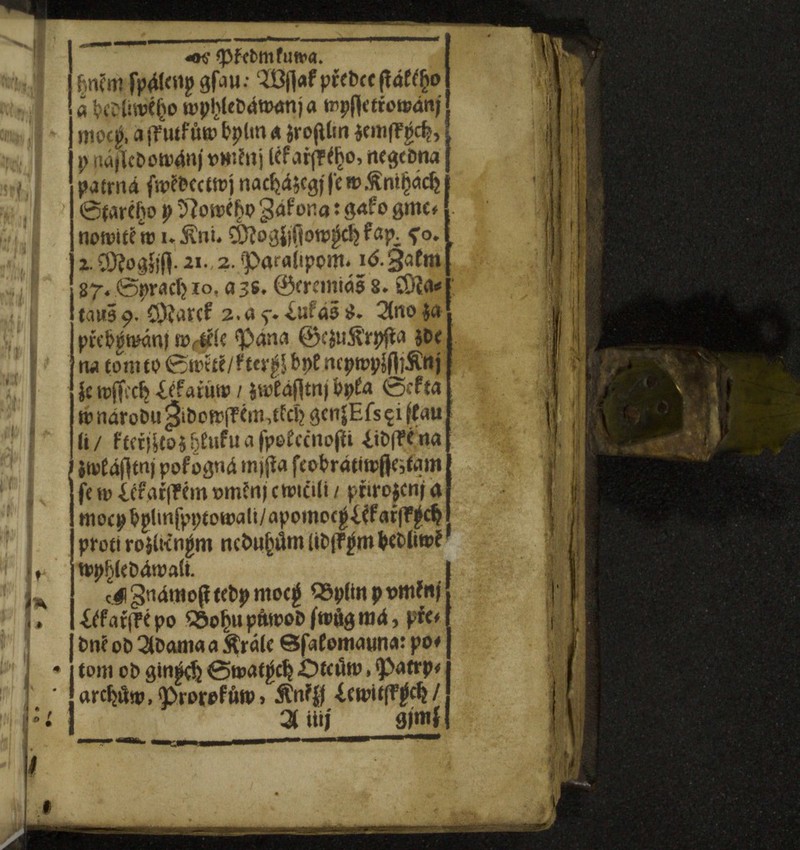 Předmłuwa.
hněm spáleny gsau: Wssak předce stáłého
a bedliwého wyhledáwanj a wyssetřowánj
mocy, a skutkůw bylin a zrostlin zemských,
y následowánj vměnj lékařského, negedna
patrná swědectwj nacházegj se w Knihách
Starého y Nowého Zákona: gako gme-
nowitě w 1. Kni. Mogžjssowých kap. 50.
2. Mogžjss. 21. 2. Paralipom. 16. Žalm
87. Syrach 10. a 38. Geremiáš 8. Ma-
tauš 9. Marek 2. a 5. Lukáš 8. Ano za
přebýwánj w těle Pána GežuKrysta zde
na tomto Swětě / kterýž był neywyžssj Knj
že wssech Lékařůw / zwłásstnj była Sekta
w národu Židowském, těch genž Essęi słau
li / kteřjžto z hłuku a společnosti Lidské na
zwłásstnj pokogná mjsta se obrátiwsse, tam
se w Lékařském vměnj cwičili / přirozenj a
mocy bylin spytowali / a pomocý Lékařských
proti rozličným neduhům lidským bedliwě
wyhledáwali.
Známost tedy mocý Bylin y vměnj
Lékařské po Bohu půwod swůg má, pře-
dně od Adama a Krále Ssałomauna: po-
tom od giných Swatých Otcůw, Patry-
archůw, Prorokůw, Kněžj Lewitských /
A iiij gjmž